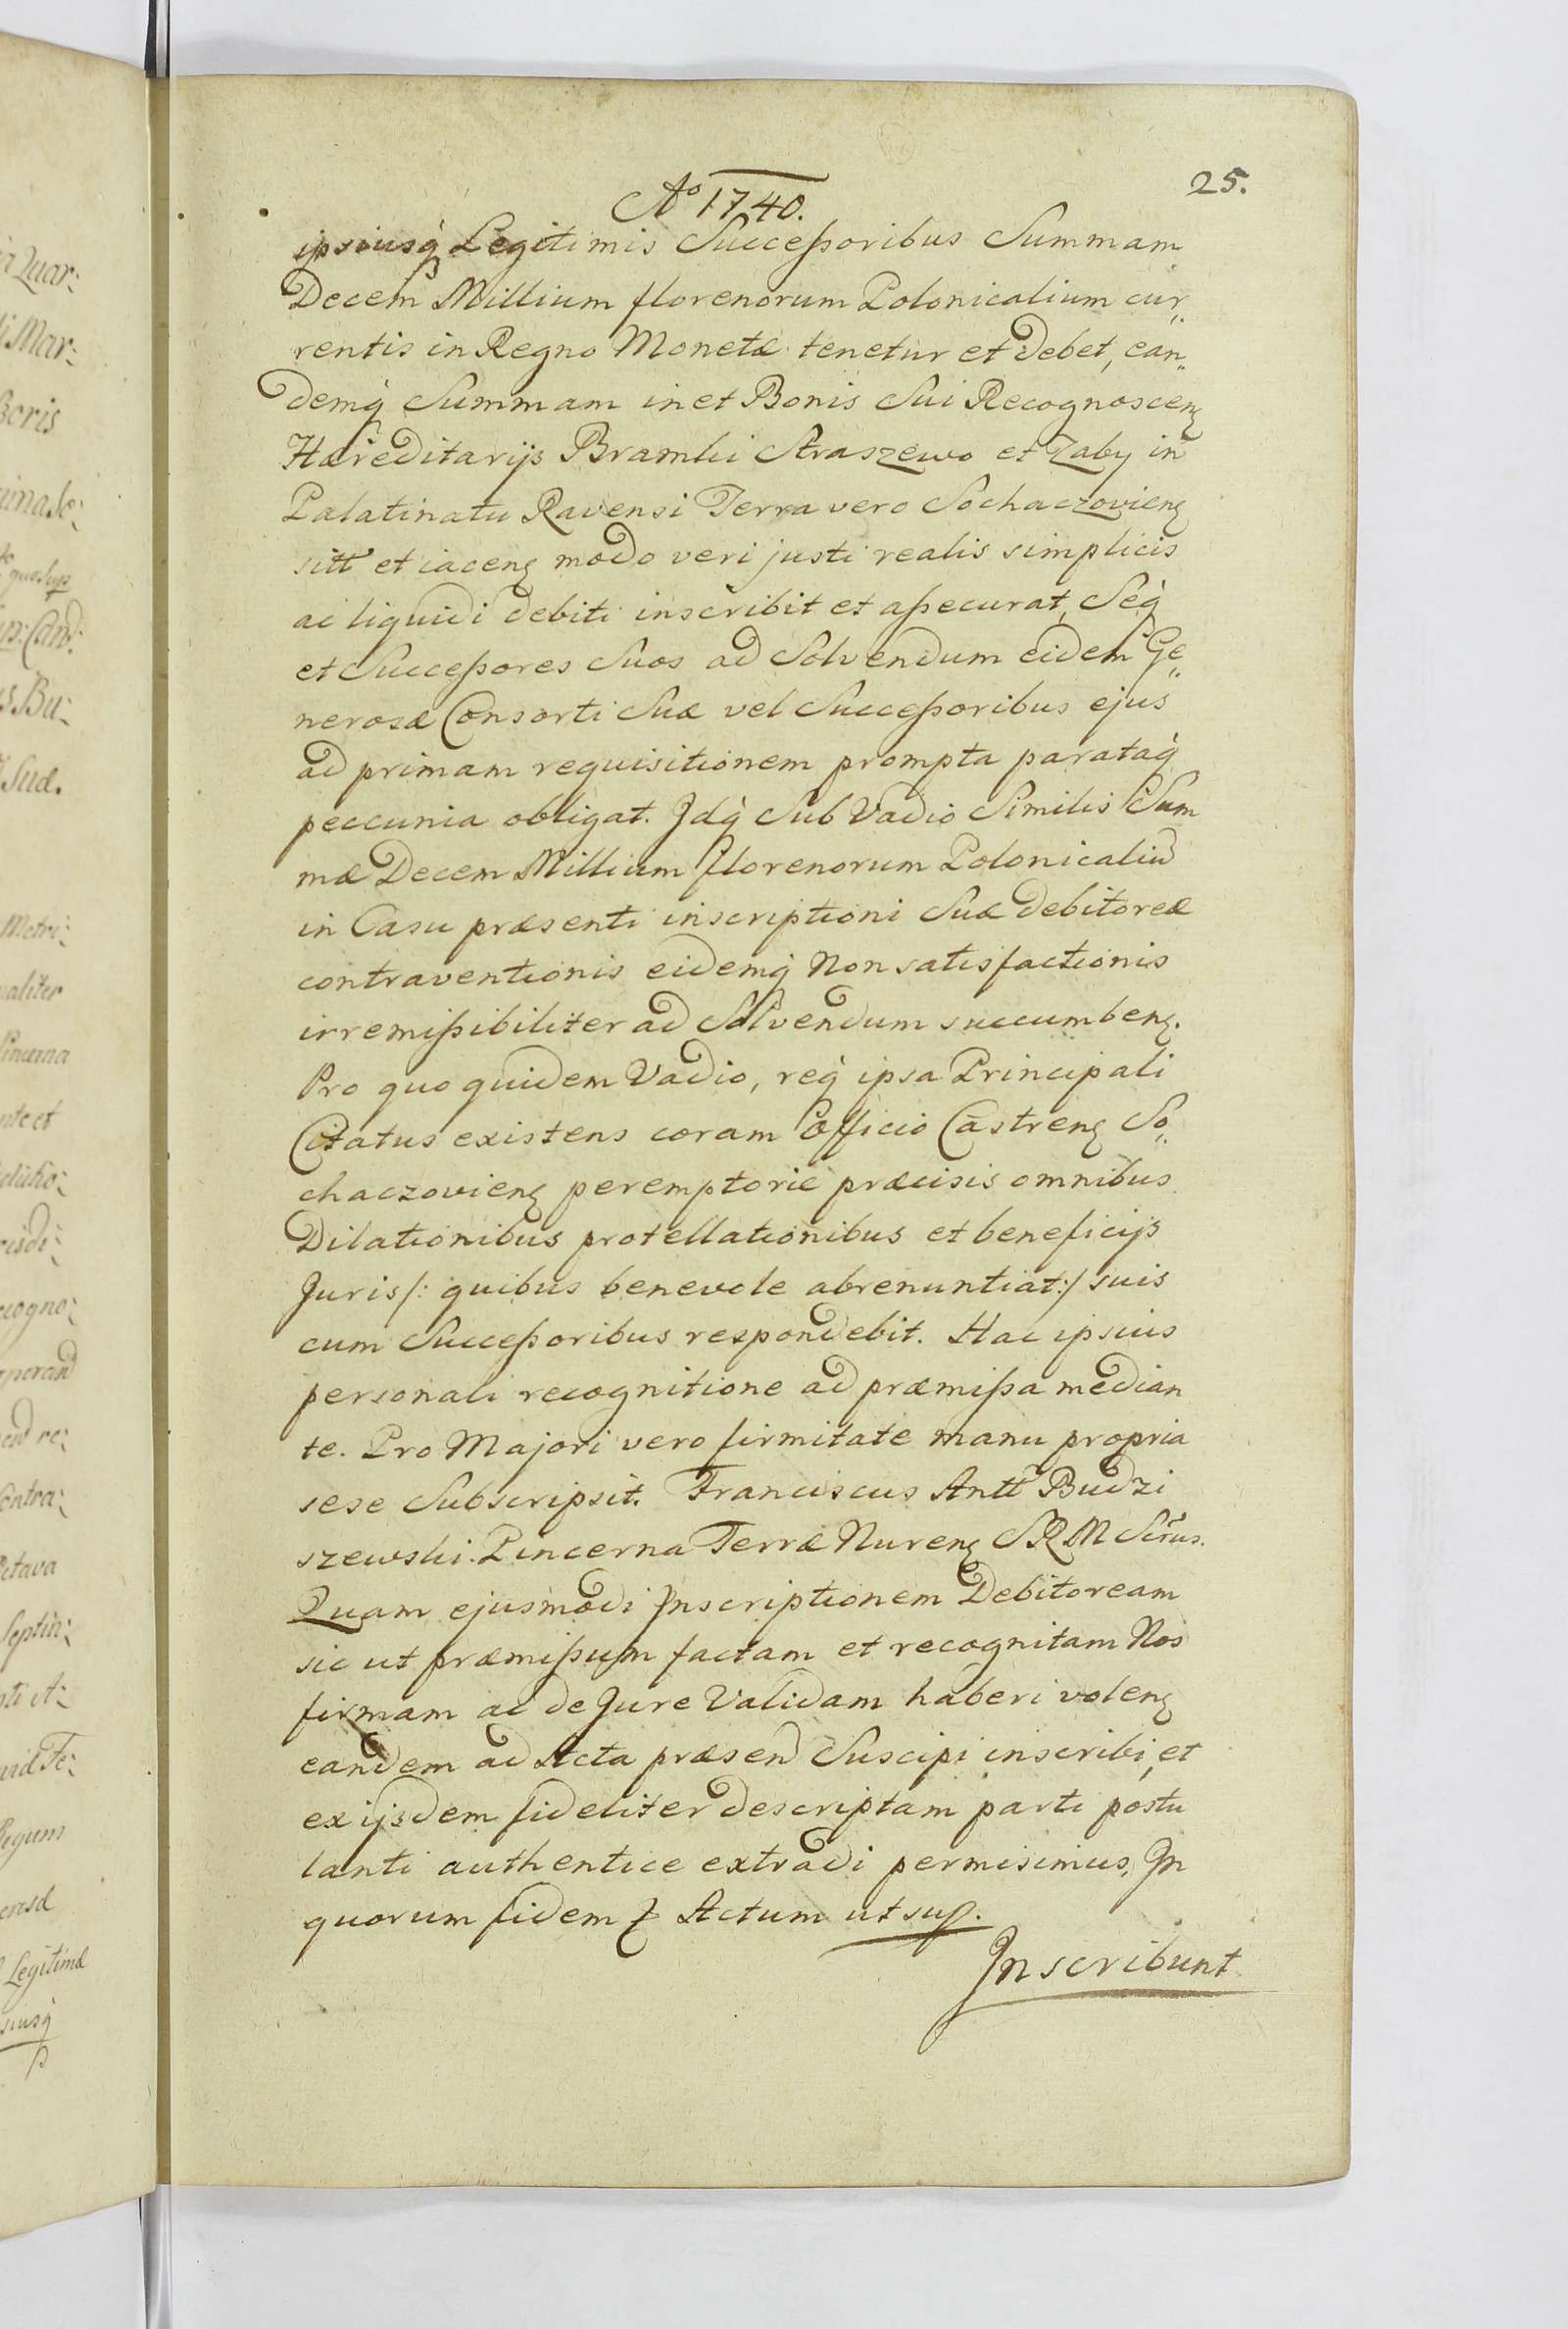 25.
Aº 1740.
ipsiusq̀ Legitimis Successoribus Summam
Decem Millium florenorum Polonicalium cur„
rentis in Regno Monetæ tenetur et debet, ean„
demq̀ Summam in et Bonis Sui Recognoscenꝫ
Hæreditarijs Bramki Straszewo et Zaby in
Palatinatu Ravensi Terra vero Sochaczovienꝫ
sitt et iacenꝫ modo veri justi realis simplicis
ac liquidi debiti inscribit et assecurat, Seq̀
et Successores Suos ad Solvendum eidem Ge„
nerosæ Consorti Suæ vel Successoribus ejus
ad primam requisitionem prompta parataq̀
peccunia obligat. Idq̀ Sub Vadio Similis Sum
mæ Decem Millium florenorum Polonicaliū
in Casu præsenti inscriptioni Suæ debitoreæ
contraventionis eidemq̀ Non satisfactionis
irremissibiliter ad Solvendum succumbenꝫ.
Pro quo quidem Vadio, req̀ ipsa Principali
Citatus existens coram Officio Castrenꝫ So„
chaczovienꝫ peremptorie præcisis omnibus
Dilationibus protellationibus et beneficijs
Juris /: quibus benevole abrenuntiat :/ suis
cum Successoribus respondebit. Hac ipsius
personali recognitione ad præmissa median
te. Pro Majori vero firmitate manu propria
sese Subscripsit. Franciscus Antt Budzi
szewski. Pincerna Terræ Nurenꝫ S R M Scrus.
Quam ejusmodi Inscriptionem Debitoream
sic ut præmissum factam et recognitam Nos
firmam ac de Jure Validam haberi volenꝫ
eandem ad Acta præsend Suscipi inscribi, et
ex ijsdem fideliter descriptam parti postu
lanti authentice extradi permisimus, In
quorum fidem ꝛ Actum ut sup.
Inscribunt